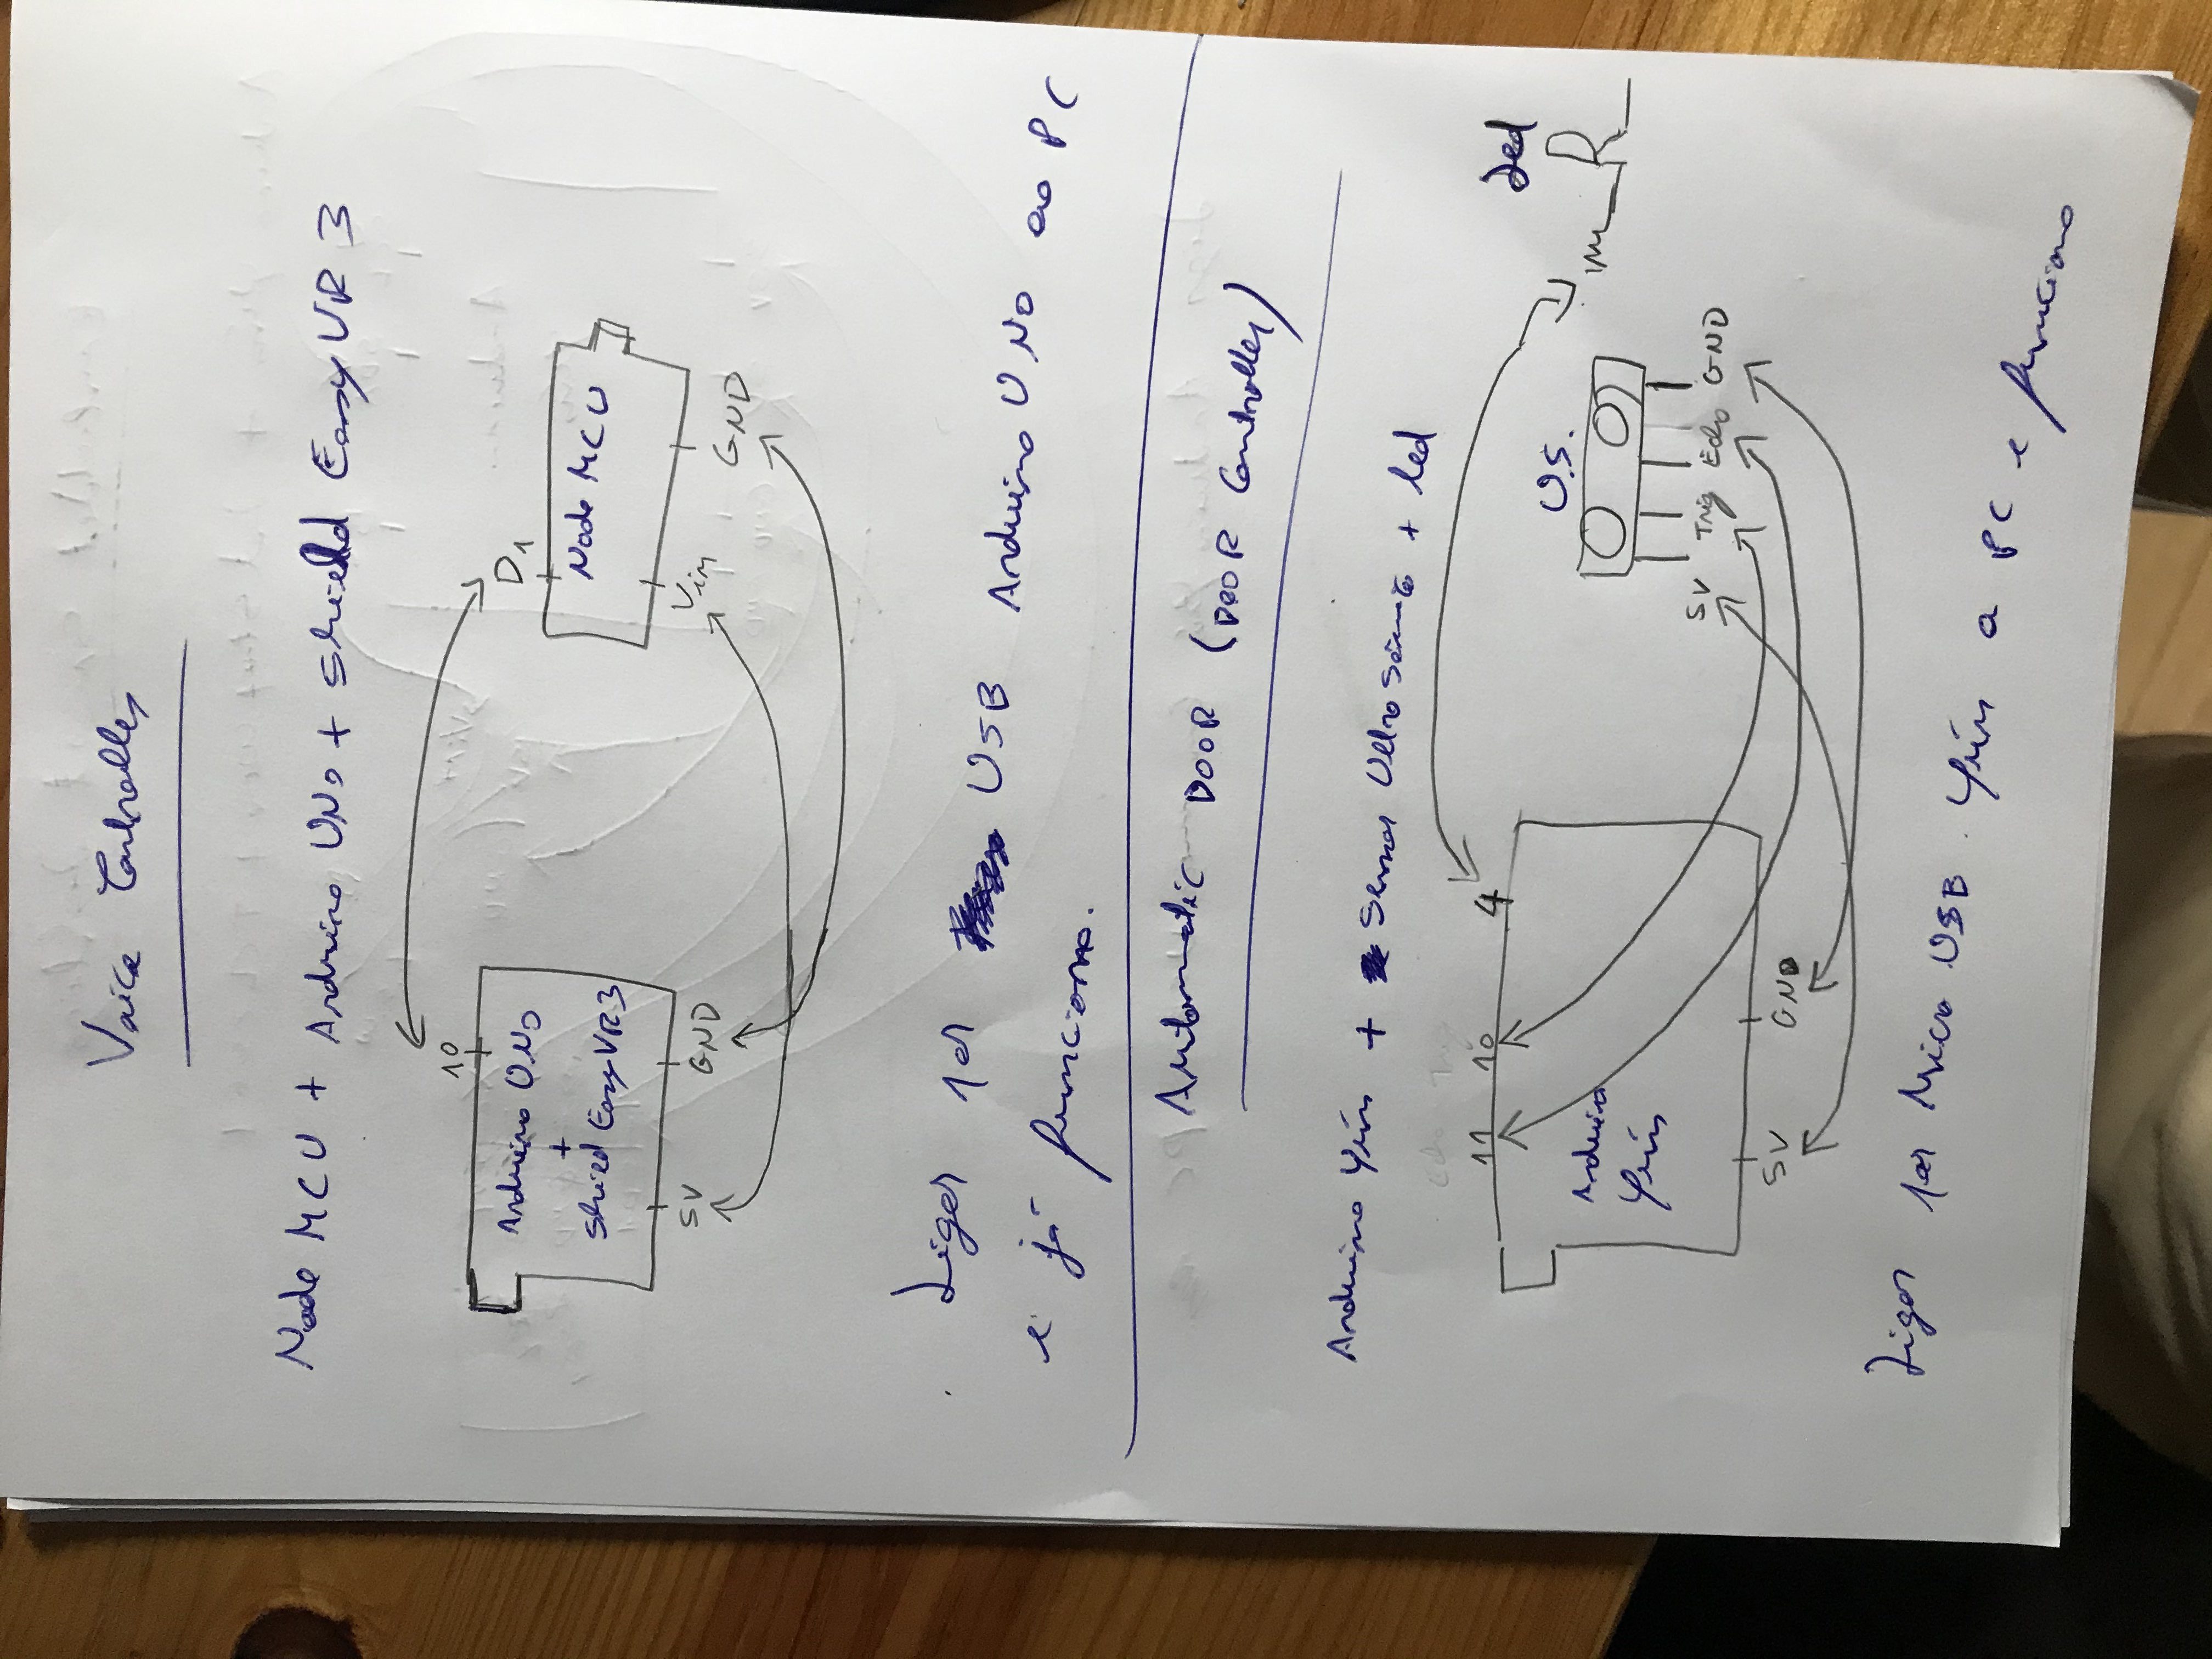 Voice Controller
Node MCU + Arduino UNO + Shield EasyVR 3
10
Arduino UNO
+
Shield EasyVR3
5V
GND
D1
Node MCU
Vin
GND
Ligar por USB Arduino UNO ao PC
e já funciona.
Automatic DOOR (DOOR Controller)
Arduino Yún + Sensor Ultrasónico + led
11 10 4
Arduino
Yún
5V
GND
U.S.
5V Trig Echo GND
Led
R
Ligar por Micro USB Yún a PC e funciona